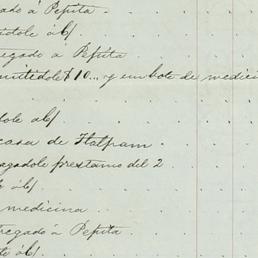 ado á Pepita.
idole á b/
regado á Pepita.
mitidole $10... y un bote de medicin
dole á b/
casa de Tlalpam.
agadole prestamo del 2
e á b/
medicina
tregado á Pepita.
de á b/